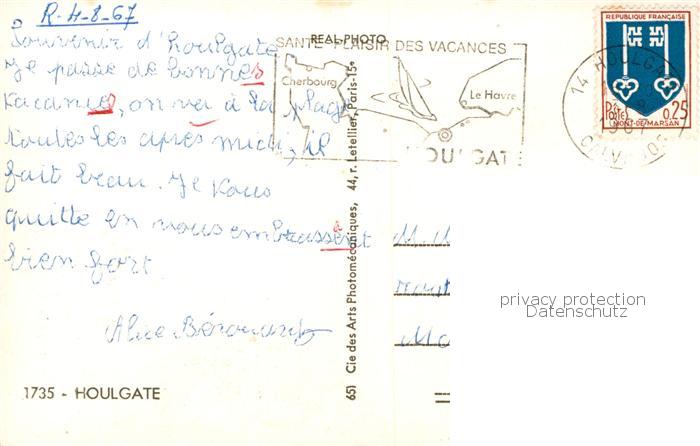 R-4-8-67
Souvenir d'houlgate
Je passe de bonnes
vacances, on va à la plage
toutes les après midi, il
fait beau. Je vous
quitte en vous embrassent
bien fort
Alice
1735 - HOULGATE
REAL-PHOTO
651 Cie des Arts Photomécaniques, 44, r. Letellier, Paris-15e
SANTÉ PLAISIR DES VACANCES
Cherbourg
Le Havre
HOULGATE
14 HOULGATE
CALVADOS
REPUBLIQUE FRANÇAISE
Postes
0,25
MONT-DE-MARSAN
privacy protection
Datenschutz